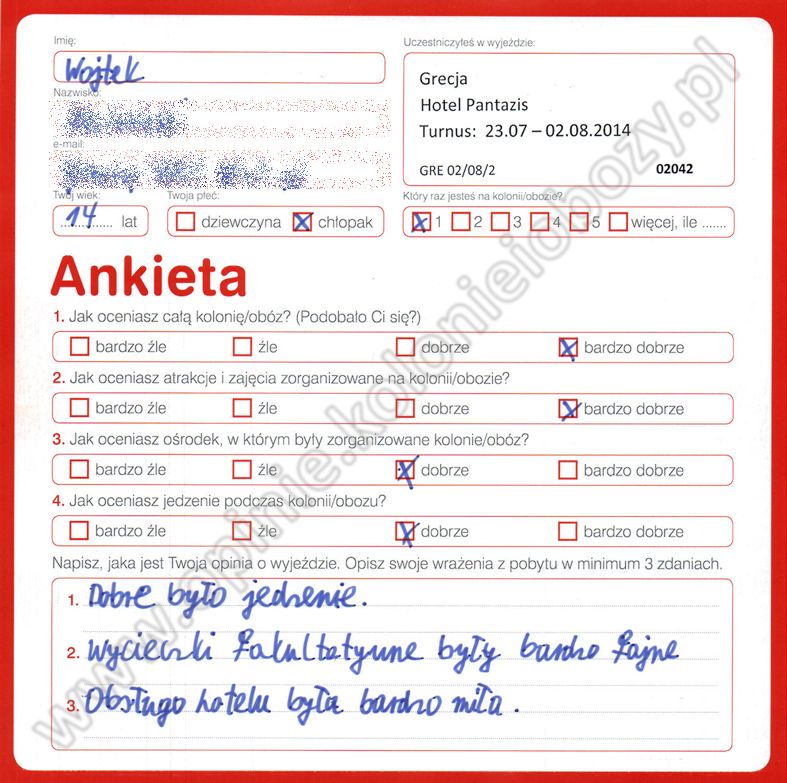 Imię:
Wojtek
Nazwisko:
e-mail:
Twój wiek:
14 lat
Twoja płeć:
dziewczyna chłopak
Uczestniczyłeś w wyjeździe:
Grecja
Hotel Pantazis
Turnus: 23.07 – 02.08.2014
GRE 02/08/2 02042
Który raz jesteś na kolonii/obozie?
1 2 3 4 5 więcej, ile .......
Ankieta
1. Jak oceniasz całą kolonię/obóz? (Podobało Ci się?)
bardzo źle źle dobrze bardzo dobrze
2. Jak oceniasz atrakcje i zajęcia zorganizowane na kolonii/obozie?
bardzo źle źle dobrze bardzo dobrze
3. Jak oceniasz ośrodek, w którym były zorganizowane kolonie/obóz?
bardzo źle źle dobrze bardzo dobrze
4. Jak oceniasz jedzenie podczas kolonii/obozu?
bardzo źle źle dobrze bardzo dobrze
Napisz, jaka jest Twoja opinia o wyjeździe. Opisz swoje wrażenia z pobytu w minimum 3 zdaniach.
1. Dobre było jedzenie.
2. Wycieczki fakultatywne były bardzo fajne
3. Obsługa hotelu była bardzo miła.
www.opinie.kolonieiobozy.pl